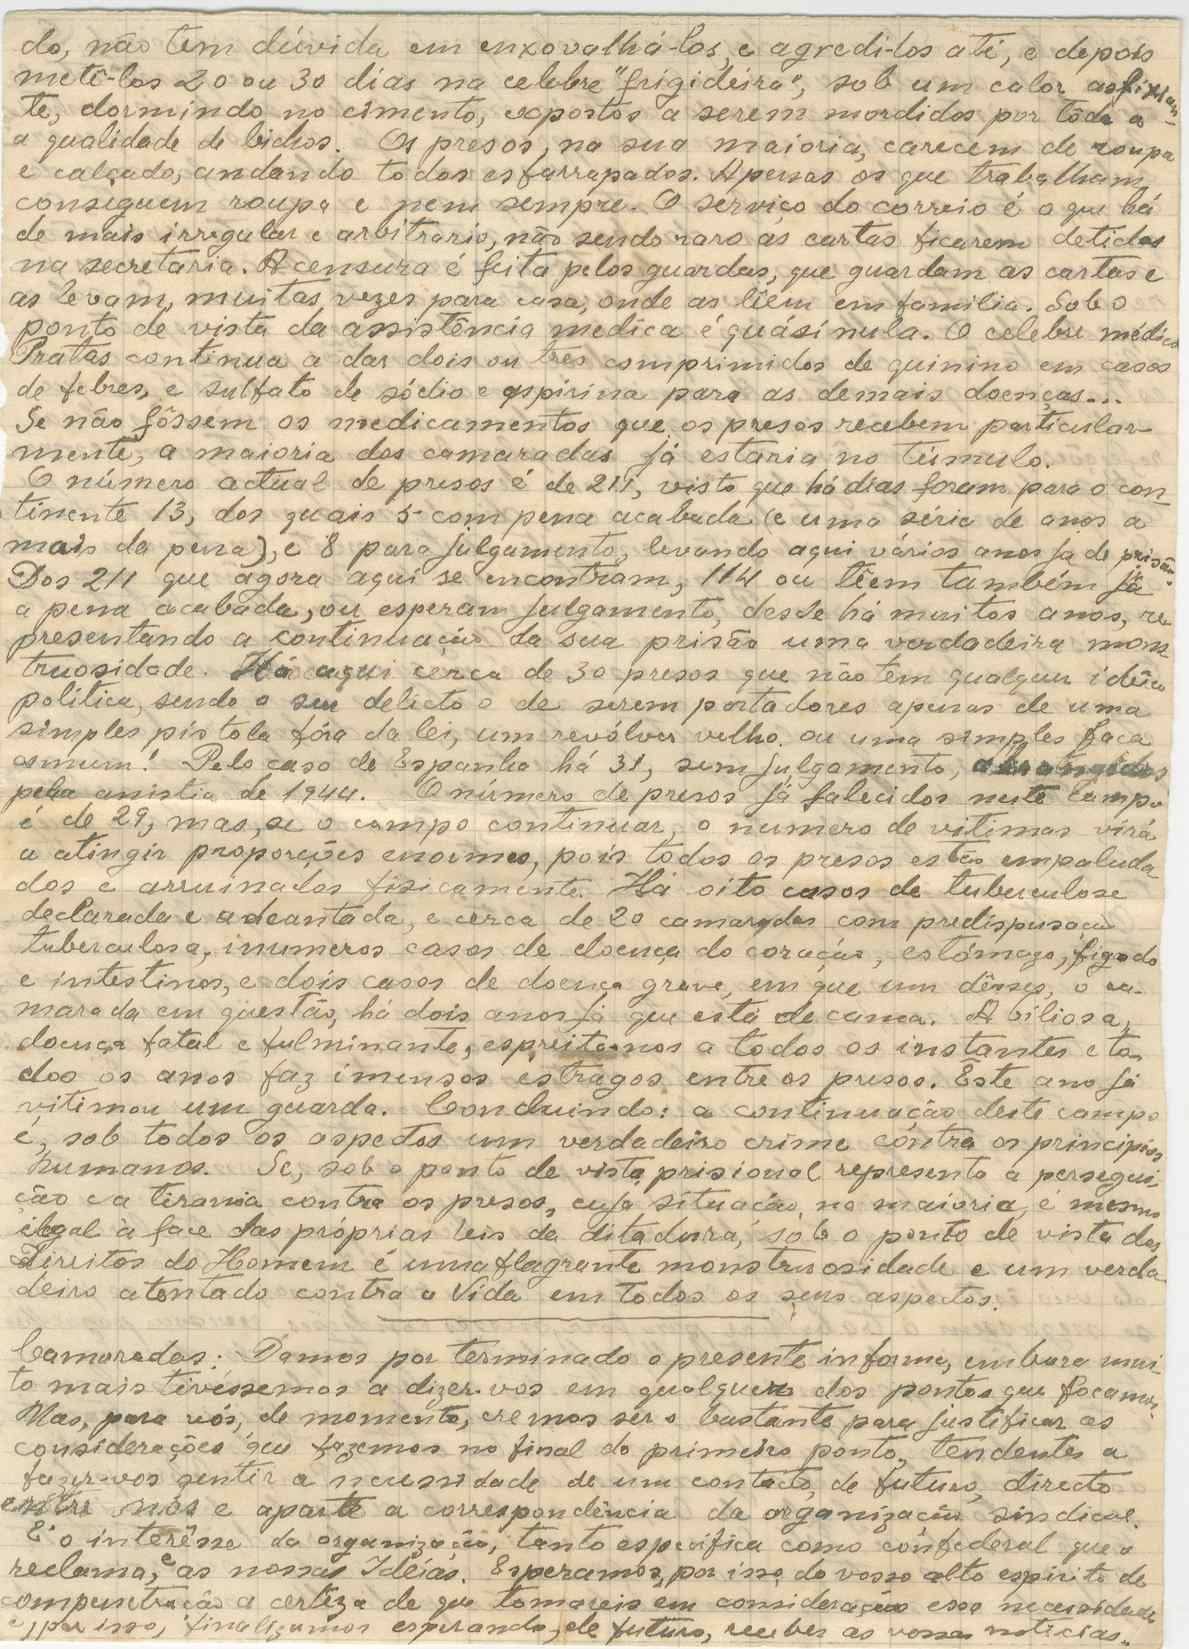 do, não tem dúvida em enxovalhá-los, e agredi-los até, e depois
metê-los 20 ou 30 dias na celebre "frigideira", sob um calor asfixian-
te, dormindo no cimento, expostos a serem mordidos por toda a
a qualidade de bichos. Os presos, na sua maioria, carecem de roupa
e calçado, andando todos esfarrapados. Apenas os que trabalham
conseguem roupa e nem sempre. O serviço do correio é o que há
de mais irregular e arbitrario, não sendo raro as cartas ficarem detidas
na secretaria. A censura é feita pelos guardas, que guardam as cartas e
as levam, muitas vezes para casa, onde as lêem em familia. Sob o
ponto de vista da assistência medica é quási nula. O celebre médico
Pratas continua a dar dois ou tres comprimidos de quinino em casos
de febres, e sulfato de sódio e aspirina para as demais doenças...
Se não fôssem os medicamentos que os presos recebem particular-
mente, a maioria dos camaradas já estaria no túmulo.
O número actual de presos é de 211, visto que há dias foram para o con-
tinente 13, dos quais 5 com pena acabada (e uma série de anos a
mais da pena), e 8 para julgamento, levando aqui vários anos já de prisão.
Dos 211 que agora aqui se encontram, 114 ou têem também já
a pena acabada, ou esperam julgamento, desde há muitos anos, re-
presentando a continuação da sua prisão uma verdadeira mons-
truosidade. Há aqui cerca de 30 presos que não têm qualquer idéia
política, sendo o seu delicto o de serem portadores apenas de uma
simples pistola fóra da lei, um revólver velho ou uma simples faca
comum! Pelo caso de Espanha há 31, sem julgamento, abrangidos
pela amistia de 1944. O número de presos já falecidos neste campo
é de 29, mas, se o campo continuar, o numero de vitimas virá
a atingir proporções enormes, pois todos os presos estão empaluda-
dos e arruinados fisicamente. Há oito casos de tuberculose
declarada e adeantada, e cerca de 20 camaradas com predisposição
tuberculosa, inumeros casos de doença do coração, estómago, figado
e intestinos, e dois casos de doença grave, em que um dêsses, o ca-
marada em questão, há dois anos já que está de cama. A biliosa,
doença fatal e fulminante, espreita-nos a todos os instantes e to-
dos os anos faz imensos estragos entre os presos. Este ano já
vitimou um guarda. Concluindo: a continuação deste campo
é, sob todos os aspectos um verdadeiro crime contra os principios
humanos. Se, sob o ponto de vista prisional representa a persegui-
ção e a tirania contra os presos, cuja situação, na maioria, é mesmo
ilegal à face das próprias leis da ditadura, sob o ponto de vista dos
Direitos do Homem é uma flagrante monstruosidade e um verda-
deiro atentado contra a Vida em todos os seus aspectos.
Camaradas: Damos por terminado o presente informe, embora mui-
to mais tivéssemos a dizer-vos em qualquer dos pontos que focamos.
Mas, para vós, de momento, cremos ser o bastante para justificar as
considerações que fazemos no final do primeiro ponto, tendentes a
fazer-vos sentir a necessidade de um contacto, de futuro, directo
entre nós e aparte a correspondência da organização sindical.
E' o interêsse da organização, tanto especifica como confederal que o
reclama, e as nossas Idéias. Esperamos, por isso, do vosso alto espirito de
compenetração a certeza de que tomareis em consideração essa necessidade
e, por isso, finalizamos esperando, de futuro, receber as vossas noticias.